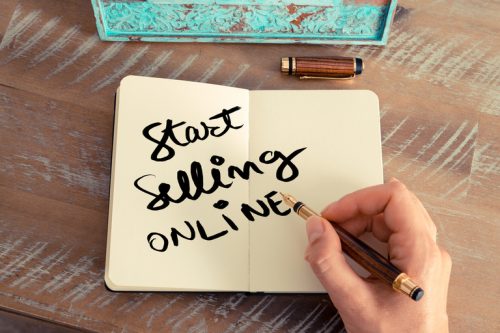 Start
Selling
ONLINE